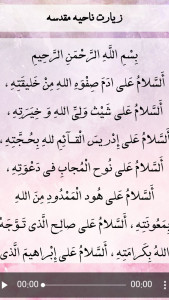 زیارت ناحیه مقدسه
بِسْمِ اللَّهِ الرَّحْمنِ الرَّحيمِ
أَلسَّلامُ عَلى ادَمَ صِفْوَهِ اللهِ مِنْ خَليقَتِهِ ،
أَلسَّلامُ عَلى شَيْث وَلِىِّ اللهِ وَ خِيَرَتِهِ ،
أَلسَّلامُ عَلى إِدْريسَ الْقــآئِمِ للهِِ بِحُـجَّتِهِ ،
أَلسَّلامُ عَلى نُوح الْمُجابِ في دَعْوَتِهِ ،
أَلسَّلامُ عَلى هُود الْمَمْدُودِ مِنَ اللهِ
بِمَعُونَتِهِ ، أَلسَّلامُ عَلى صالِح الَّذي تَـوَّجَهُ
اللهُ بِكَرامَتِهِ ، أَلسَّلامُ عَلى إِبْراهيمَ الَّذي
00:00 00:00